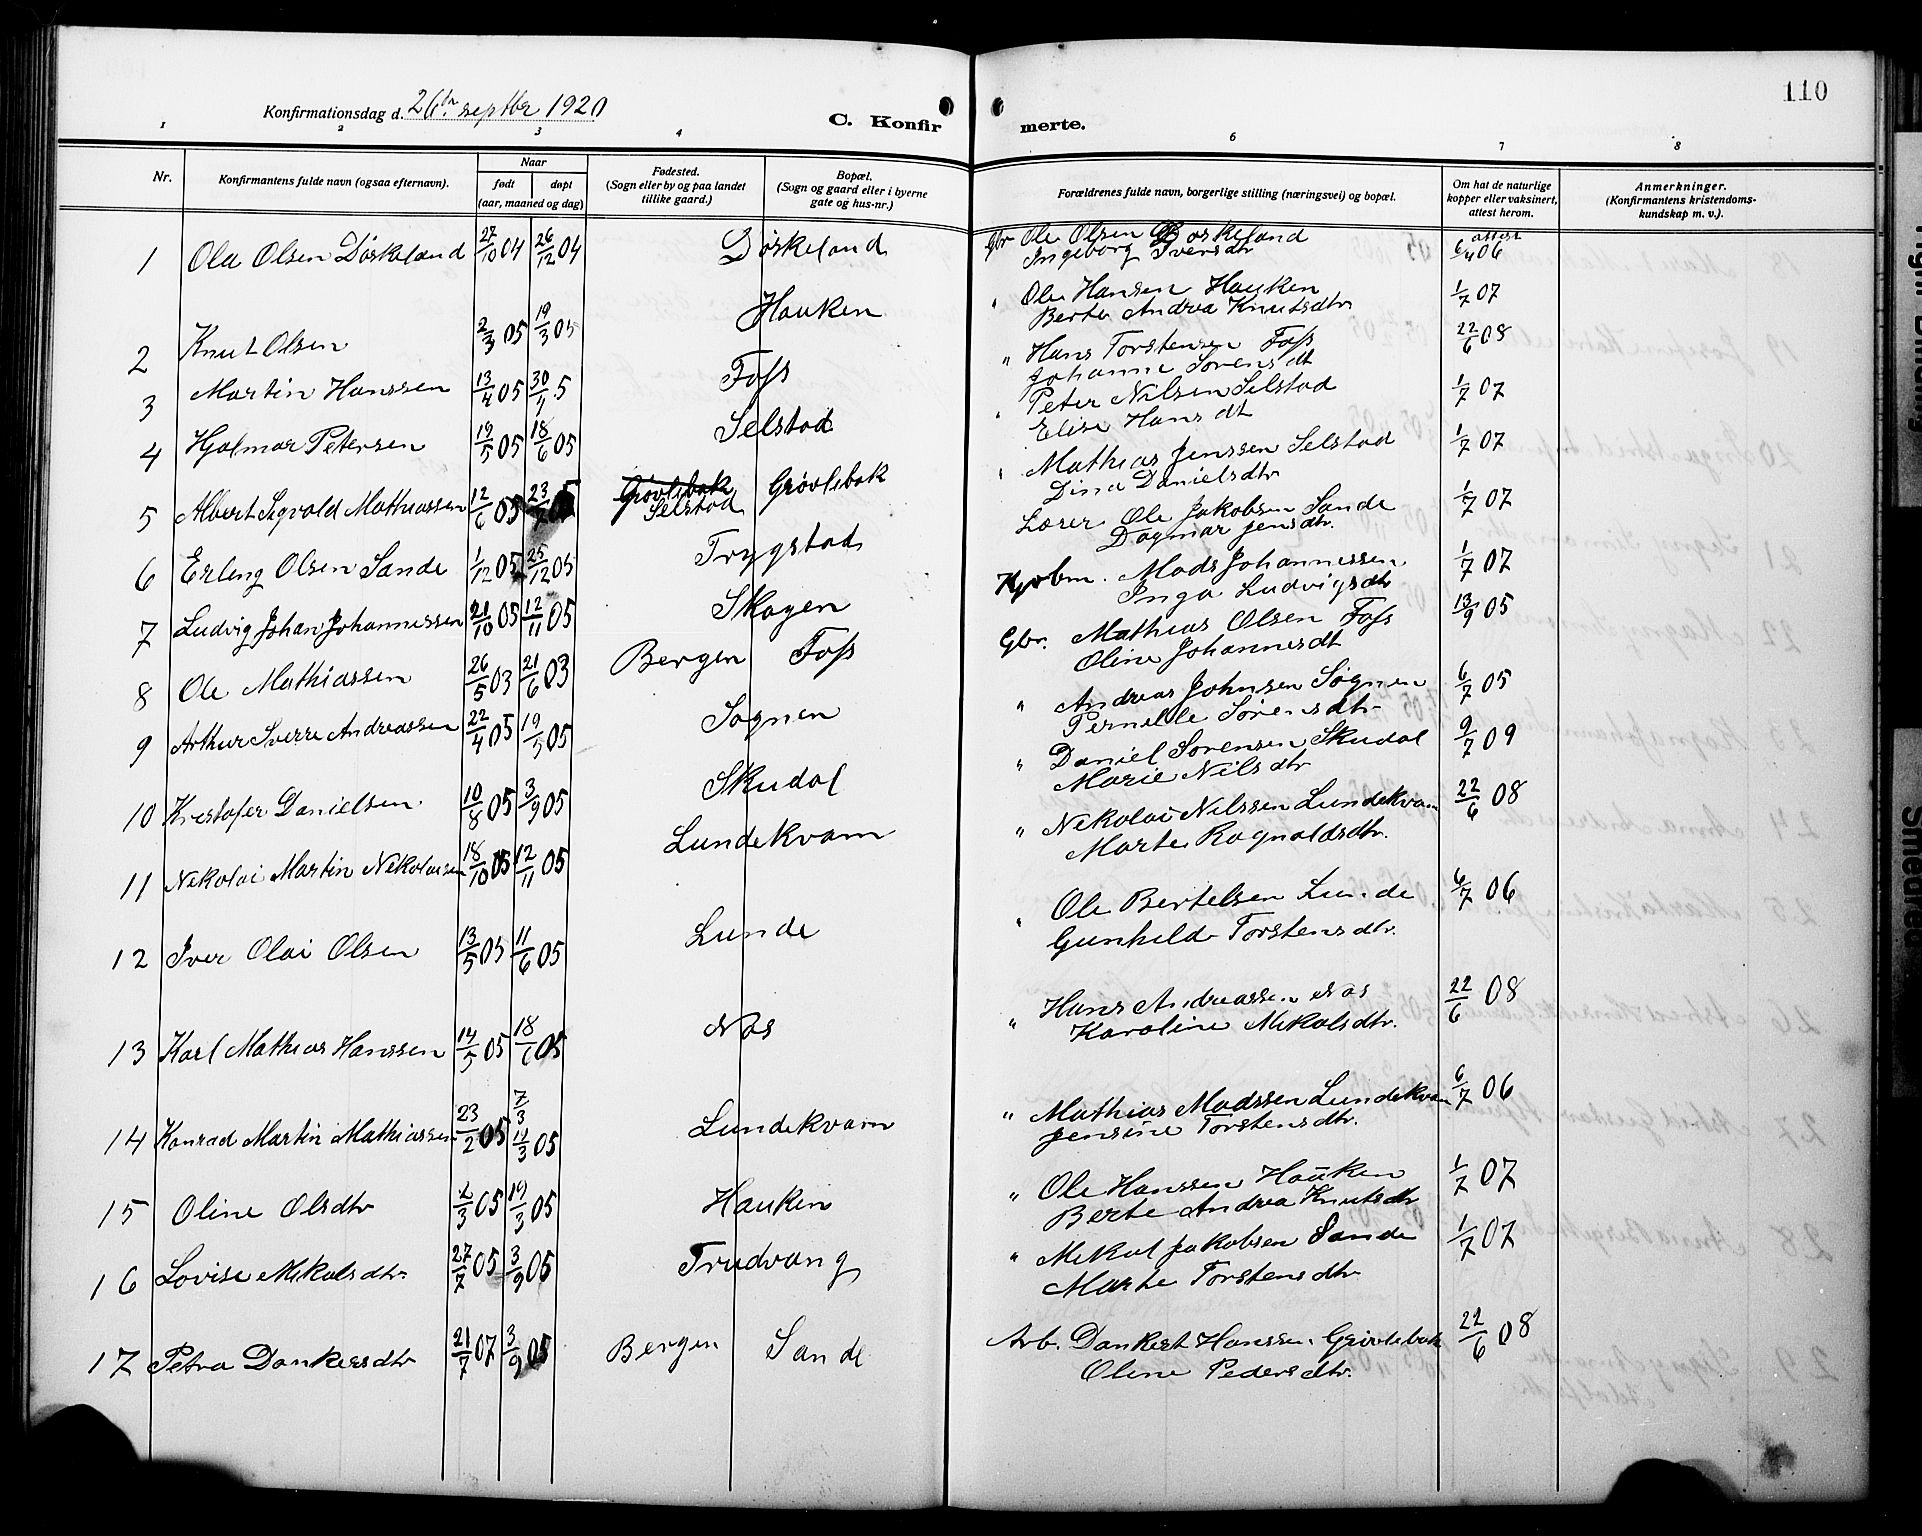 110
Konfirmationsdag d. 26de septbr 1920
C. Konfirmerte.
1 2 3 4 6 7 8
Nr.
Konfirmantens fulde navn (ogsaa efternavn).
Naar
født
døpt
(aar, maaned og dag)
Fødested.
(Sogn eller by og paa landet
tillike gaard.)
Bopæl.
(Sogn og gaard eller i byerne
gate og hus-nr.)
Forældrenes fulde navn, borgerlige stilling (næringsvei) og bopæl.
Om hat de naturlige
kopper eller vaksinert,
attest herom.
Anmerkninger.
(Konfirmantens kristendoms-
kundskap m. v.).
1 Ola Olsen Døskeland 27/10 04 26/12 04 Døskeland Gbr Ole Olsen Døskeland attest 6/4 06
Ingeborg Iversdtr
2 Knut Olsen 2/3 05 19/3 05 Hauken " Ole Hansen Hauken 1/7 07
Berte Andrea Knutsdtr
3 Martin Hanssen 13/4 05 30/4 5 Foss " Hans Torstensen Foss 22/6 08
Johanne Sørensdt
4 Hjalmar Petersen 19/5 05 18/6 05 Selstad " Peter Nilsen Selstad 1/7 07
Elise Hansdt
5 Albert Sigvald Mathiassen 12/6 05 23/7 05 Grøvlebak Selstad Grøvlebak " Mathias Jenssen Selstad 1/7 07
Dina Danielsdtr
6 Erling Olsen Sande 1/12 05 25/12 05 Trygstad Lærer Ole Jakobsen Sande 1/7 07
Dagmar Jensdtr.
7 Ludvig Johan Johannessen 21/10 05 12/11 05 Skagen Kjøbm. Mads Johannessen 1/7 07
Inga Ludvigsdtr
8 Ole Mathiassen 26/5 03 21/6 03 Bergen Foss Gbr. Mathias Olsen Foss 13/9 05
Oline Johannesdt
9 Arthur Sverre Andreassen 22/4 05 19/5 05 Sognen " Andreas Johnsen Sognen 6/7 05
Pernille Sørensdtr
10 Kristofer Danielsen 10/8 05 3/9 05 Skudal " Daniel Sørensen Skudal 9/7 09
Marie Nilsdtr
11 Nikolai Martin Nikolaisen 18/10 05 12/11 05 Lundekvam " Nikolai Nilssen Lundekvam 22/6 08
Marte Ragnaldsdtr.
12 Iver Olai Olsen 13/5 05 11/6 05 Lunde " Ole Bertelsen Lunde 6/7 06
Gunhild Torstensdtr.
13 Karl Mathias Hanssen 14/5 05 18/6 05 Nes " Hans Andreassen Nes 22/6 08
Karoline Mikalsdtr.
14 Konrad Martin Mathiassen 23/2 05 7/3 12/3 05 Lundekvam " Mathias Madssen Lundekvam 6/7 06
Jensine Torstensdtr.
15 Oline Olsdtr 2/3 05 19/3 05 Hauken " Ole Hanssen Hauken 1/7 07
Berte Andrea Knutsdtr
16 Lovise Mikalsdtr. 27/7 05 3/9 05 Trudvang " Mikal Jakobsen Sande 1/7 07
Marte Torstensdtr
17 Petra Dankersdtr 21/7 07 3/9 05 Bergen Sande Arb. Dankert Hanssen Grøvlebak 22/6 08
Oline Pedersdtr.